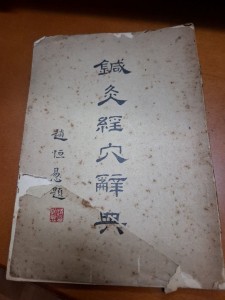 鍼灸經穴辭典
趙恒惖題